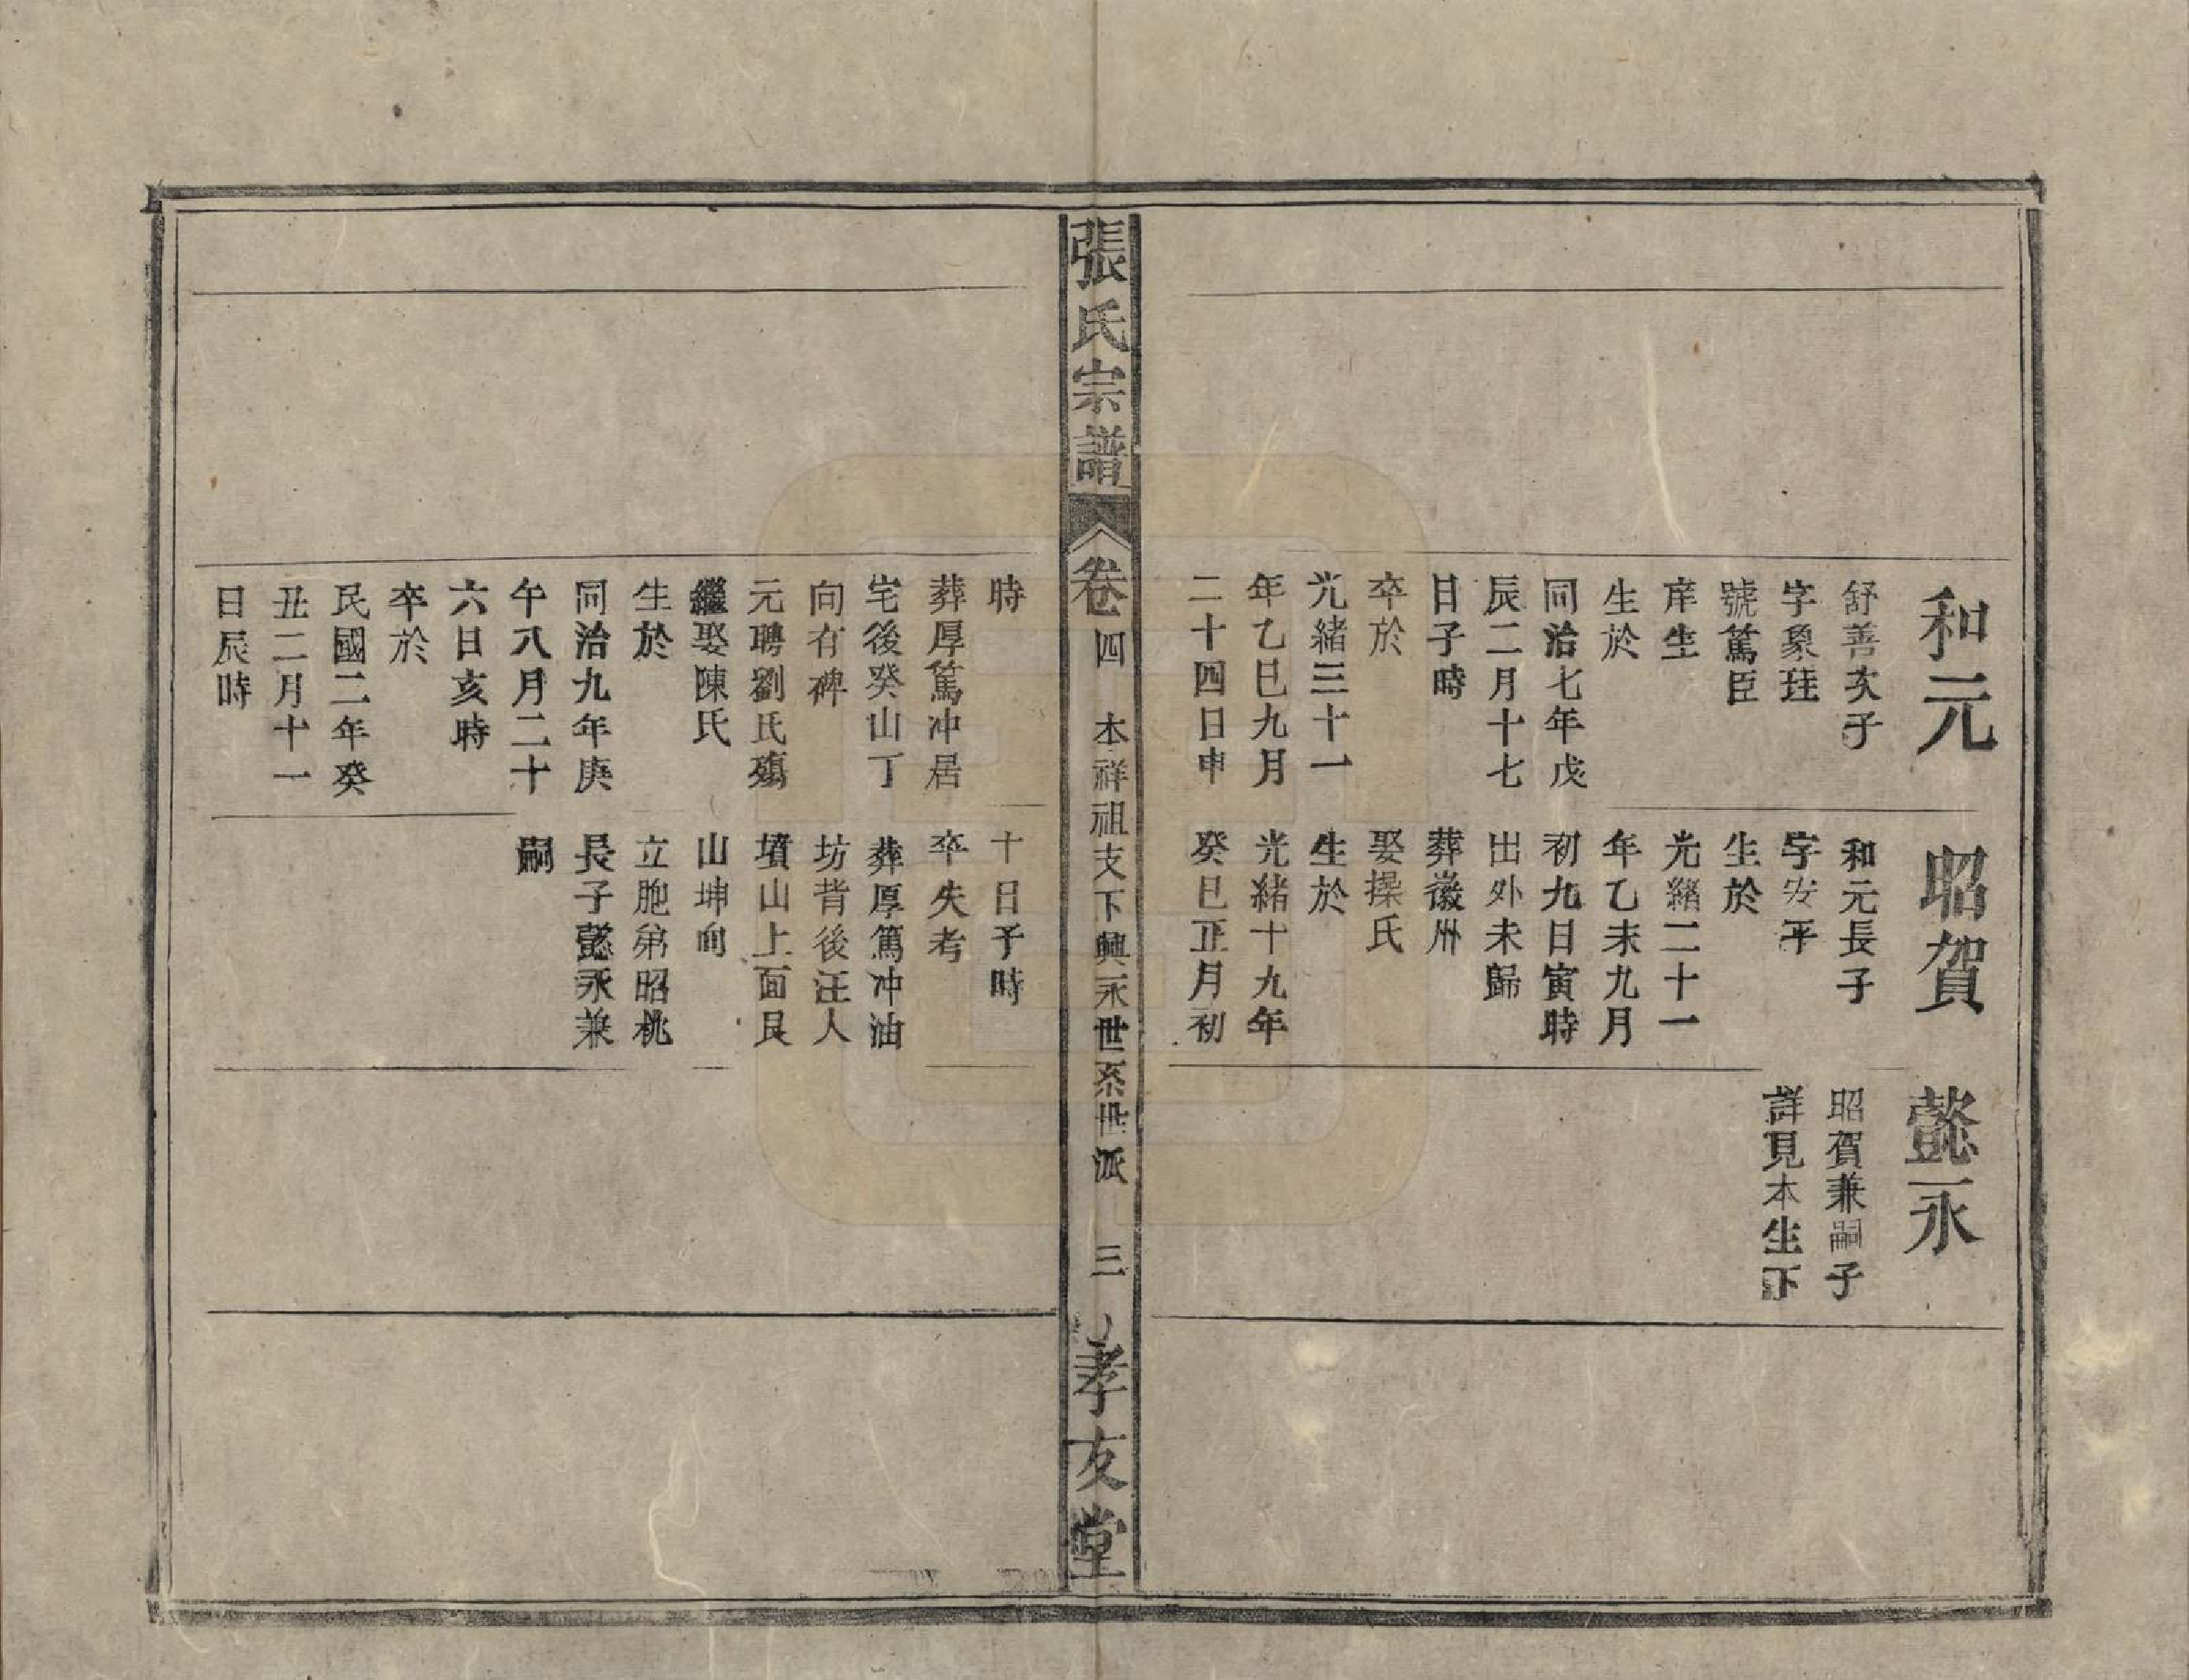 和元
舒善次子
字象珏
號篤臣
庠生
生於
同治七年戊
辰二月十七
日子時
卒於
光緒三十一
年乙巳九月
二十四日申
昭賀
和元長子
字安平
生於
光緒二十一
年乙未九月
初九日寅時
出外未歸
葬徽州
娶操氏
生於
光緒十九年
癸巳正月初
懿永
昭賀兼嗣子
詳見本生下
張氏宗譜
卷四
本祥祖支下興永世系世派
三
孝友堂
時
葬厚篤冲居
宅後癸山丁
向有碑
元聘劉氏殤
繼娶陳氏
生於
同治九年庚
午八月二十
六日亥時
卒於
民國二年癸
丑二月十一
日辰時
十日子時
卒失考
葬厚篤冲油
坊背後汪人
墳山上面艮
山坤向
立胞弟昭桃
長子懿永兼
嗣